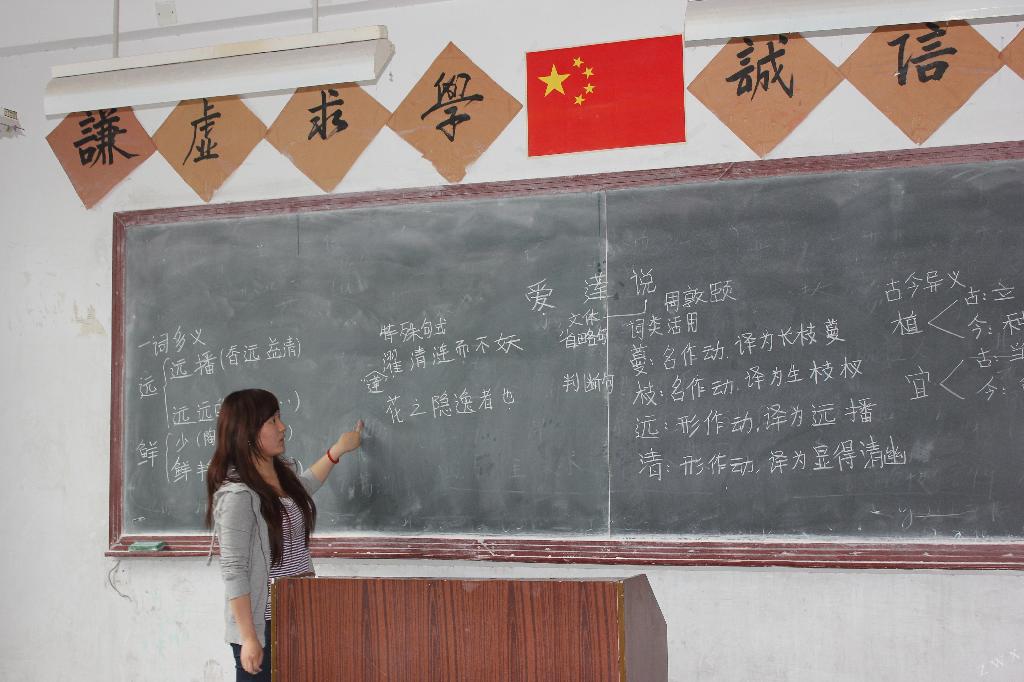 謙虛求學
誠信
爱莲说
周敦颐
一词多义
远
远播(香远益清)
鲜
少(陶
特殊句式
文体
省略句
濯清涟而不妖
(莲)
花之隐逸者也
判断句
词类活用
蔓:名作动.译为长枝蔓
枝:名作动.译为生枝杈
远:形作动,译为远播
清:形作动,译为显得清幽
古今异义
植
古:立
今:
宜
古:当
今:
zwx